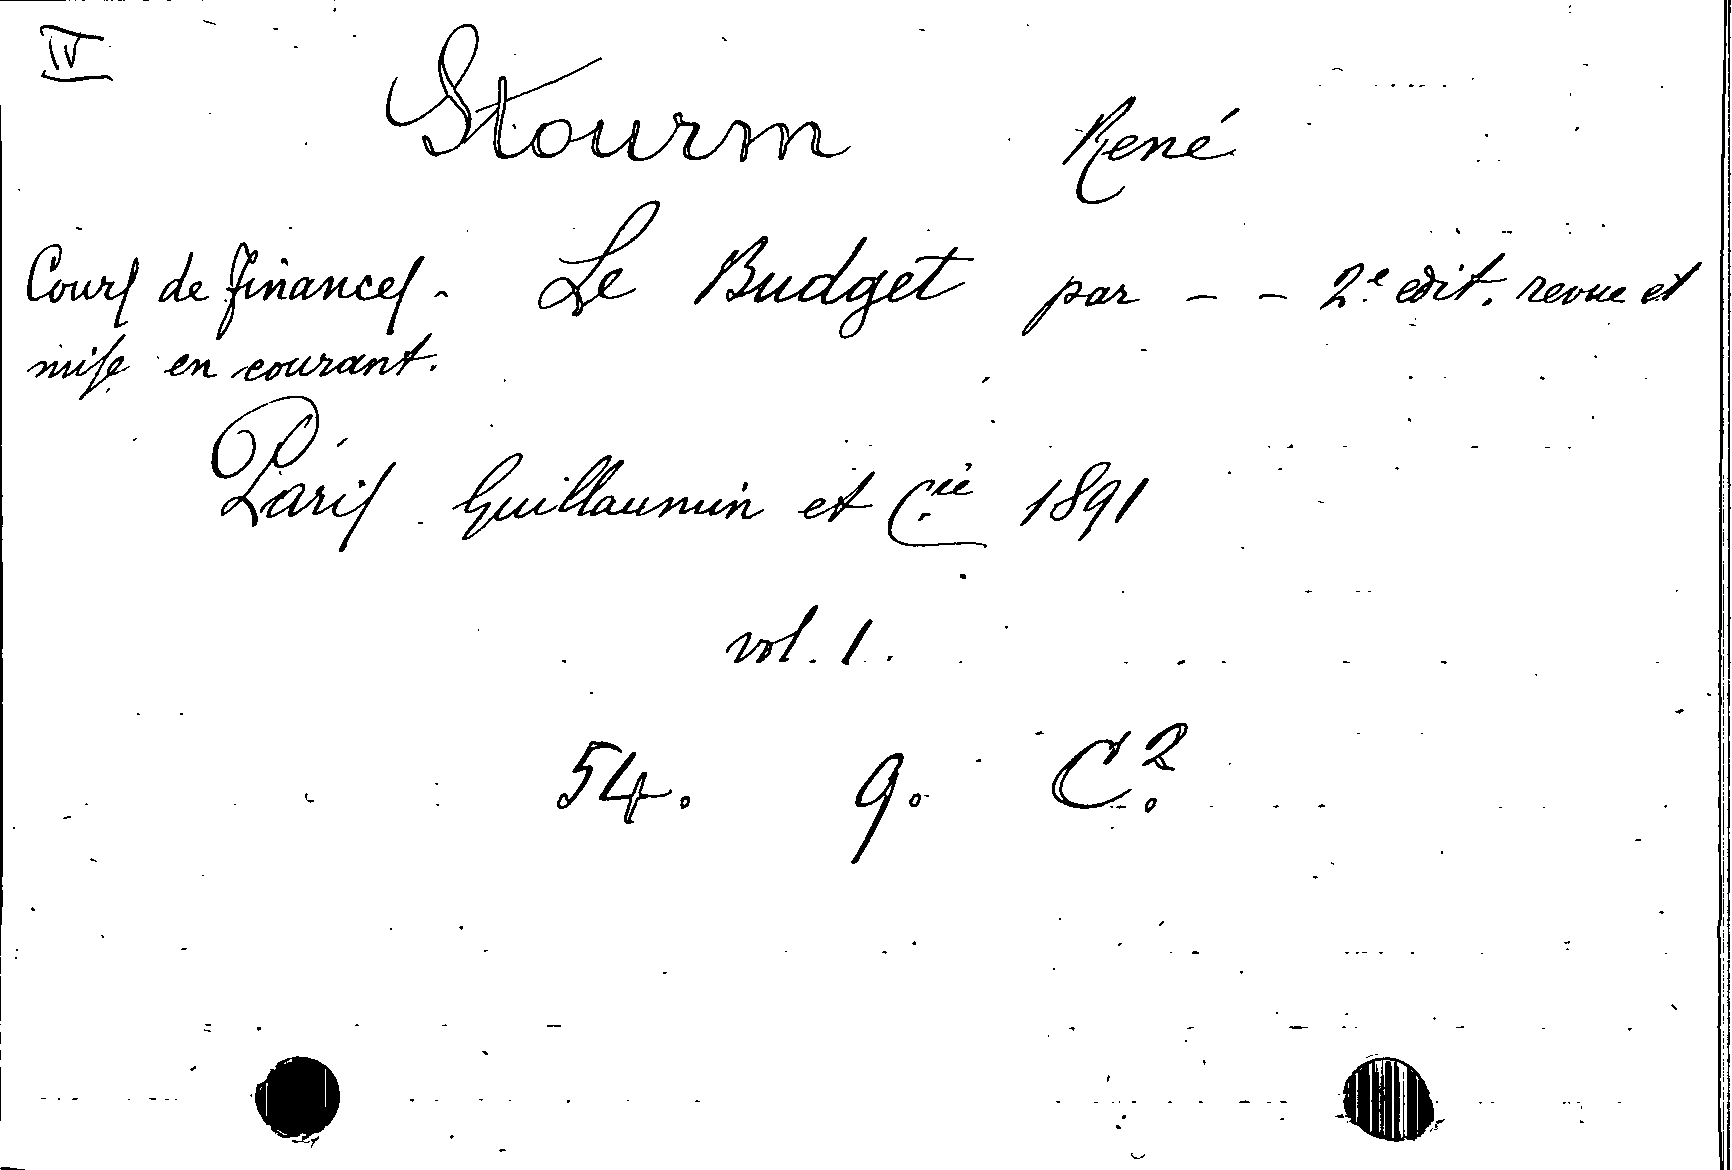 IV
Stourm René
Cours de finances - Le Budget par - - 2.e edit. revue et
mise en courant.
Paris Guillaumin et C.ie 1891
vol. 1.
54. 9. C.2